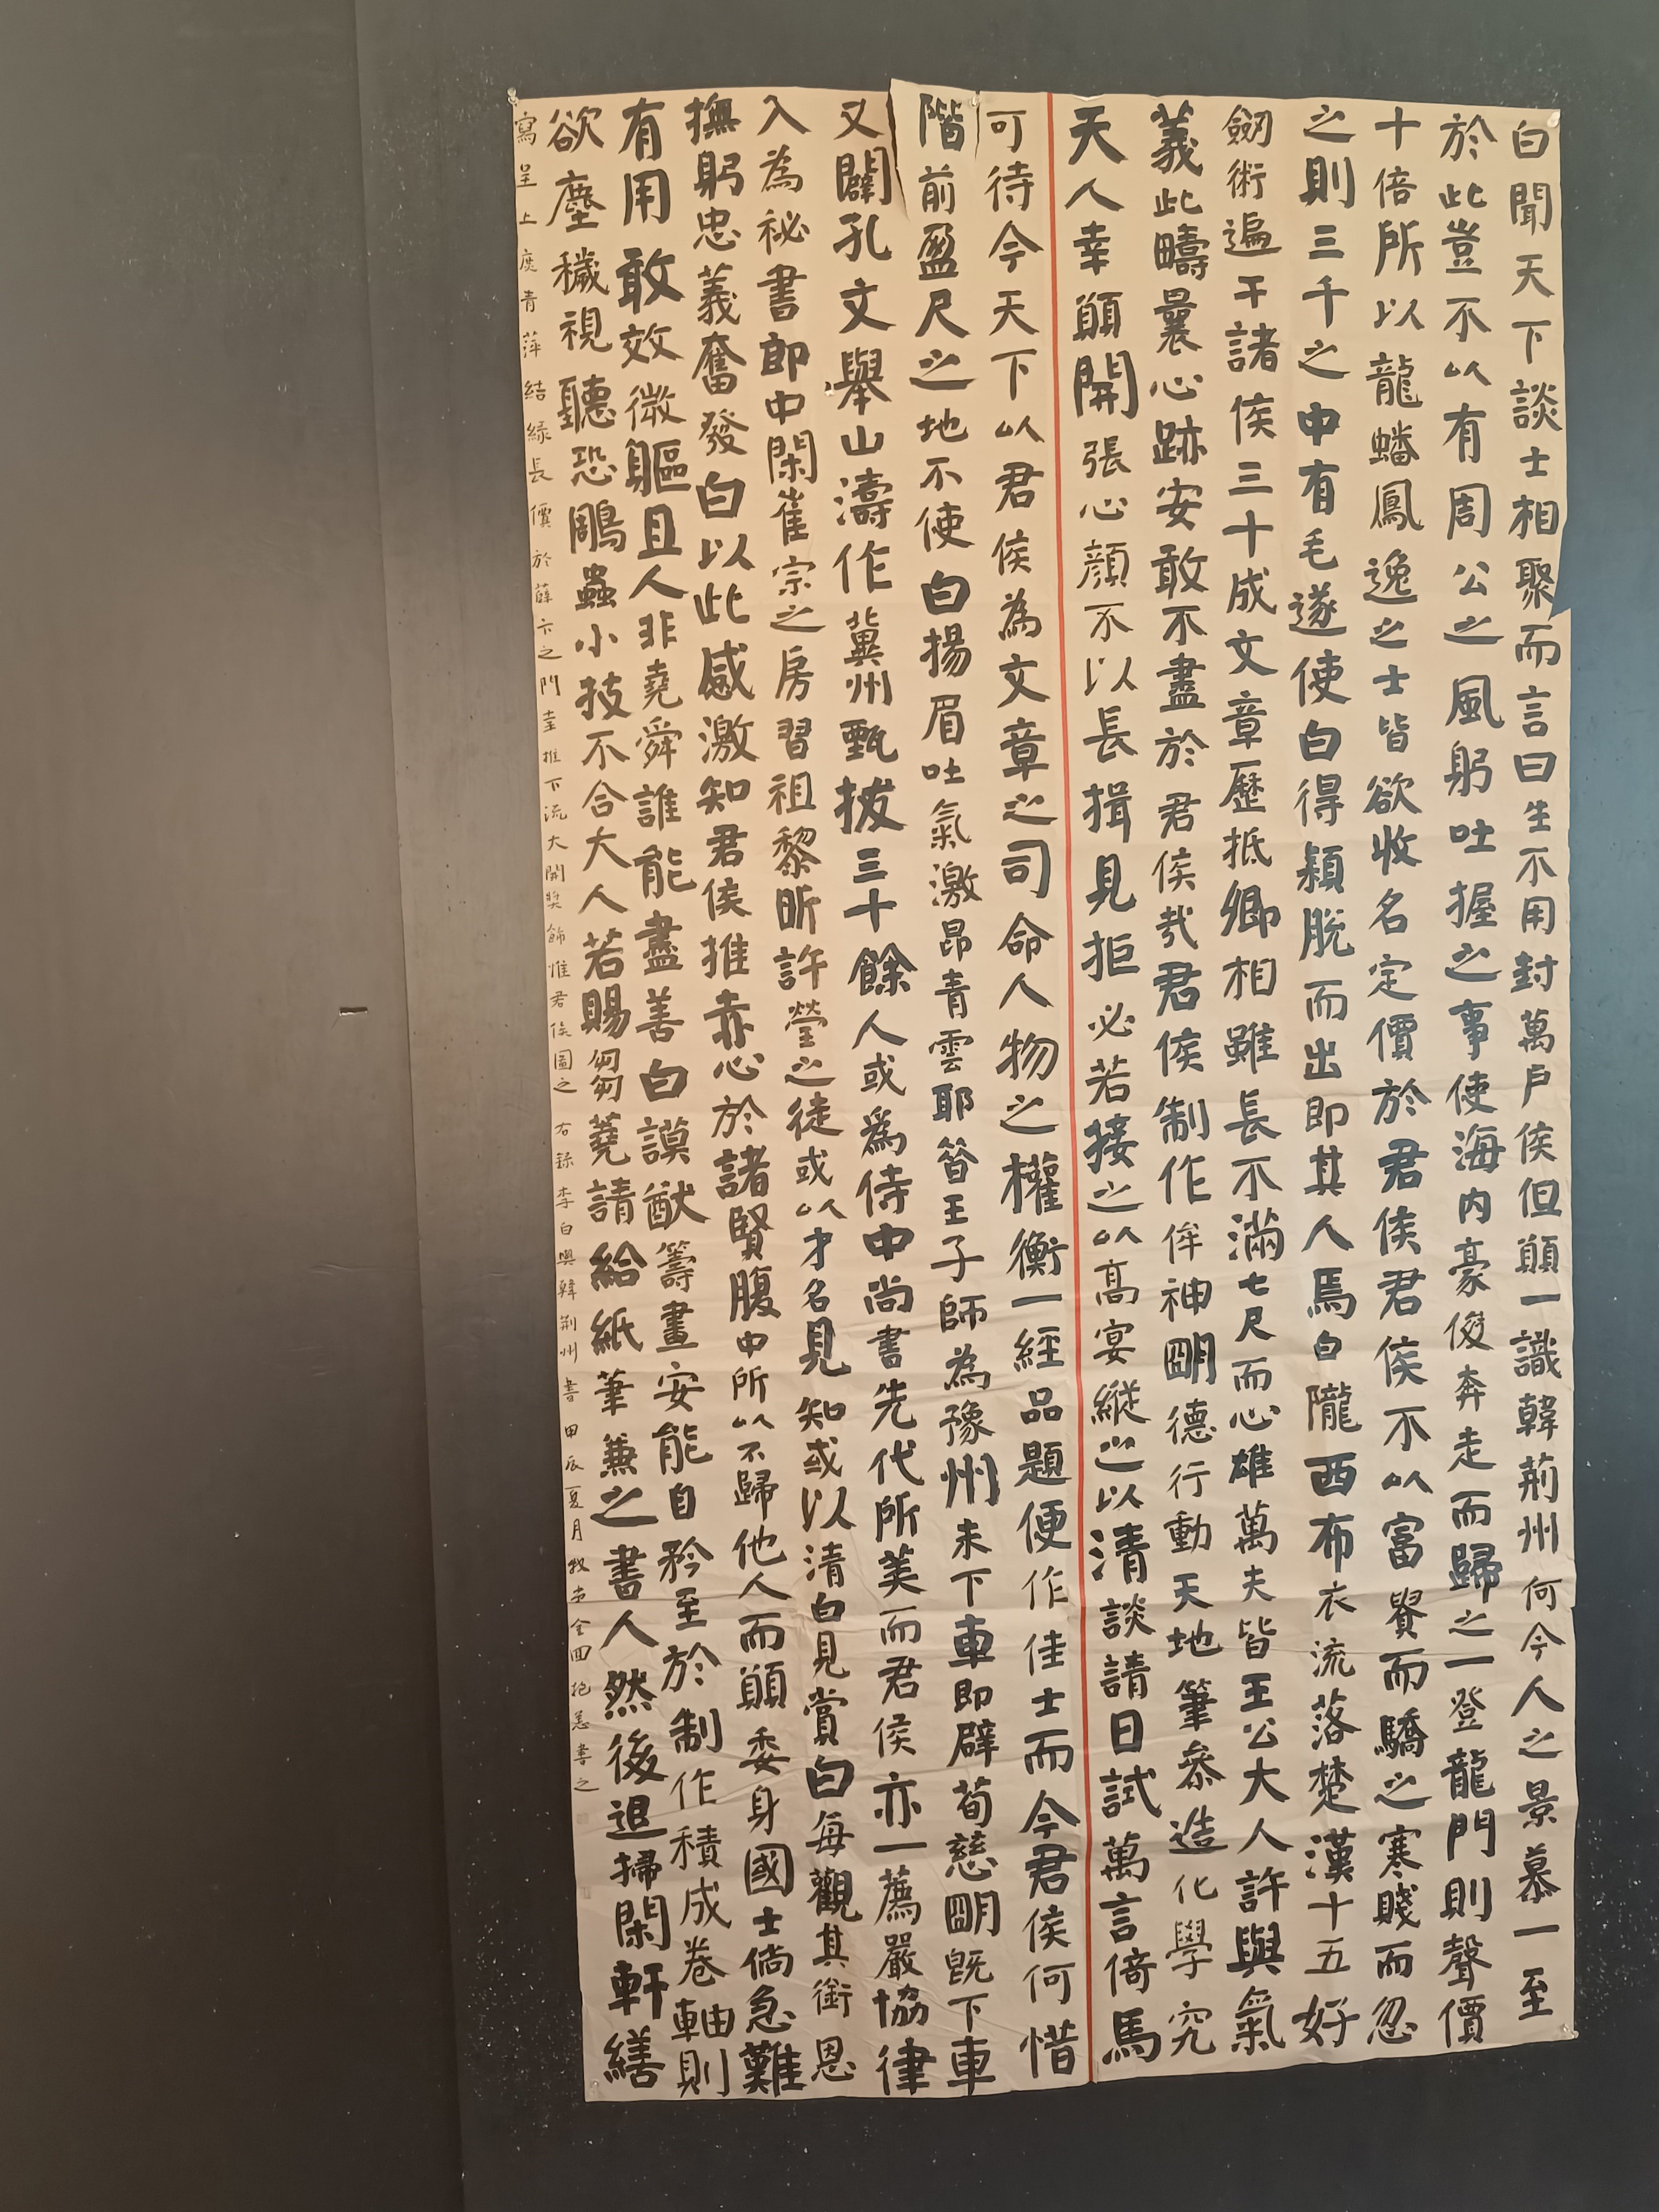 白聞天下談士相聚而言曰生不用封萬戶侯但願一識韓荊州何令人之景慕一至
於此豈不以有周公之風躬吐握之事使海內豪俊奔走而歸之一登龍門則聲價
十倍所以龍蟠鳳逸之士皆欲收名定價於君侯君侯不以富貴而驕之寒賤而忽
之則三千之中有毛遂使白得穎脫而出即其人焉白隴西布衣流落楚漢十五好
劒術遍干諸侯三十成文章歷抵卿相雖長不滿七尺而心雄萬夫皆王公大人許與氣
義此疇曩心跡安敢不盡於君侯哉君侯制作侔神朙德行動天地筆參造化學究
天人幸願開張心顏不以長揖見拒必若接之以高宴縱之以清談請日試萬言倚馬
可待今天下以君侯為文章之司命人物之權衡一經品題便作佳士而今君侯何惜
階前盈尺之地不使白揚眉吐氣激昂青雲耶昔王子師為豫州未下車即辟荀慈朙既下車
又闢孔文舉山濤作冀州甄拔三十餘人或為侍中尚書先代所美而君侯亦一薦嚴協律
入為秘書郎中閑崔宗之房習祖黎昕許瑩之徒或以才名見知或以清白見賞白每觀其銜恩
撫躬忠義奮發白以此感激知君侯推赤心於諸賢腹中所以不歸他人而願委身國士倘急難
有用敢效微軀且人非堯舜誰能盡善白謨猷籌畫安能自矜至於制作積成卷軸則
欲塵穢視聽恐鵰蟲小技不合大人若賜芻蕘請給紙筆兼之書人然後退掃閑軒繕
寫呈上庶青萍結綠長價於薛卞之門幸推下流大開獎飾惟君侯圖之 右錄李白與韓荊州書 甲辰夏月 書之